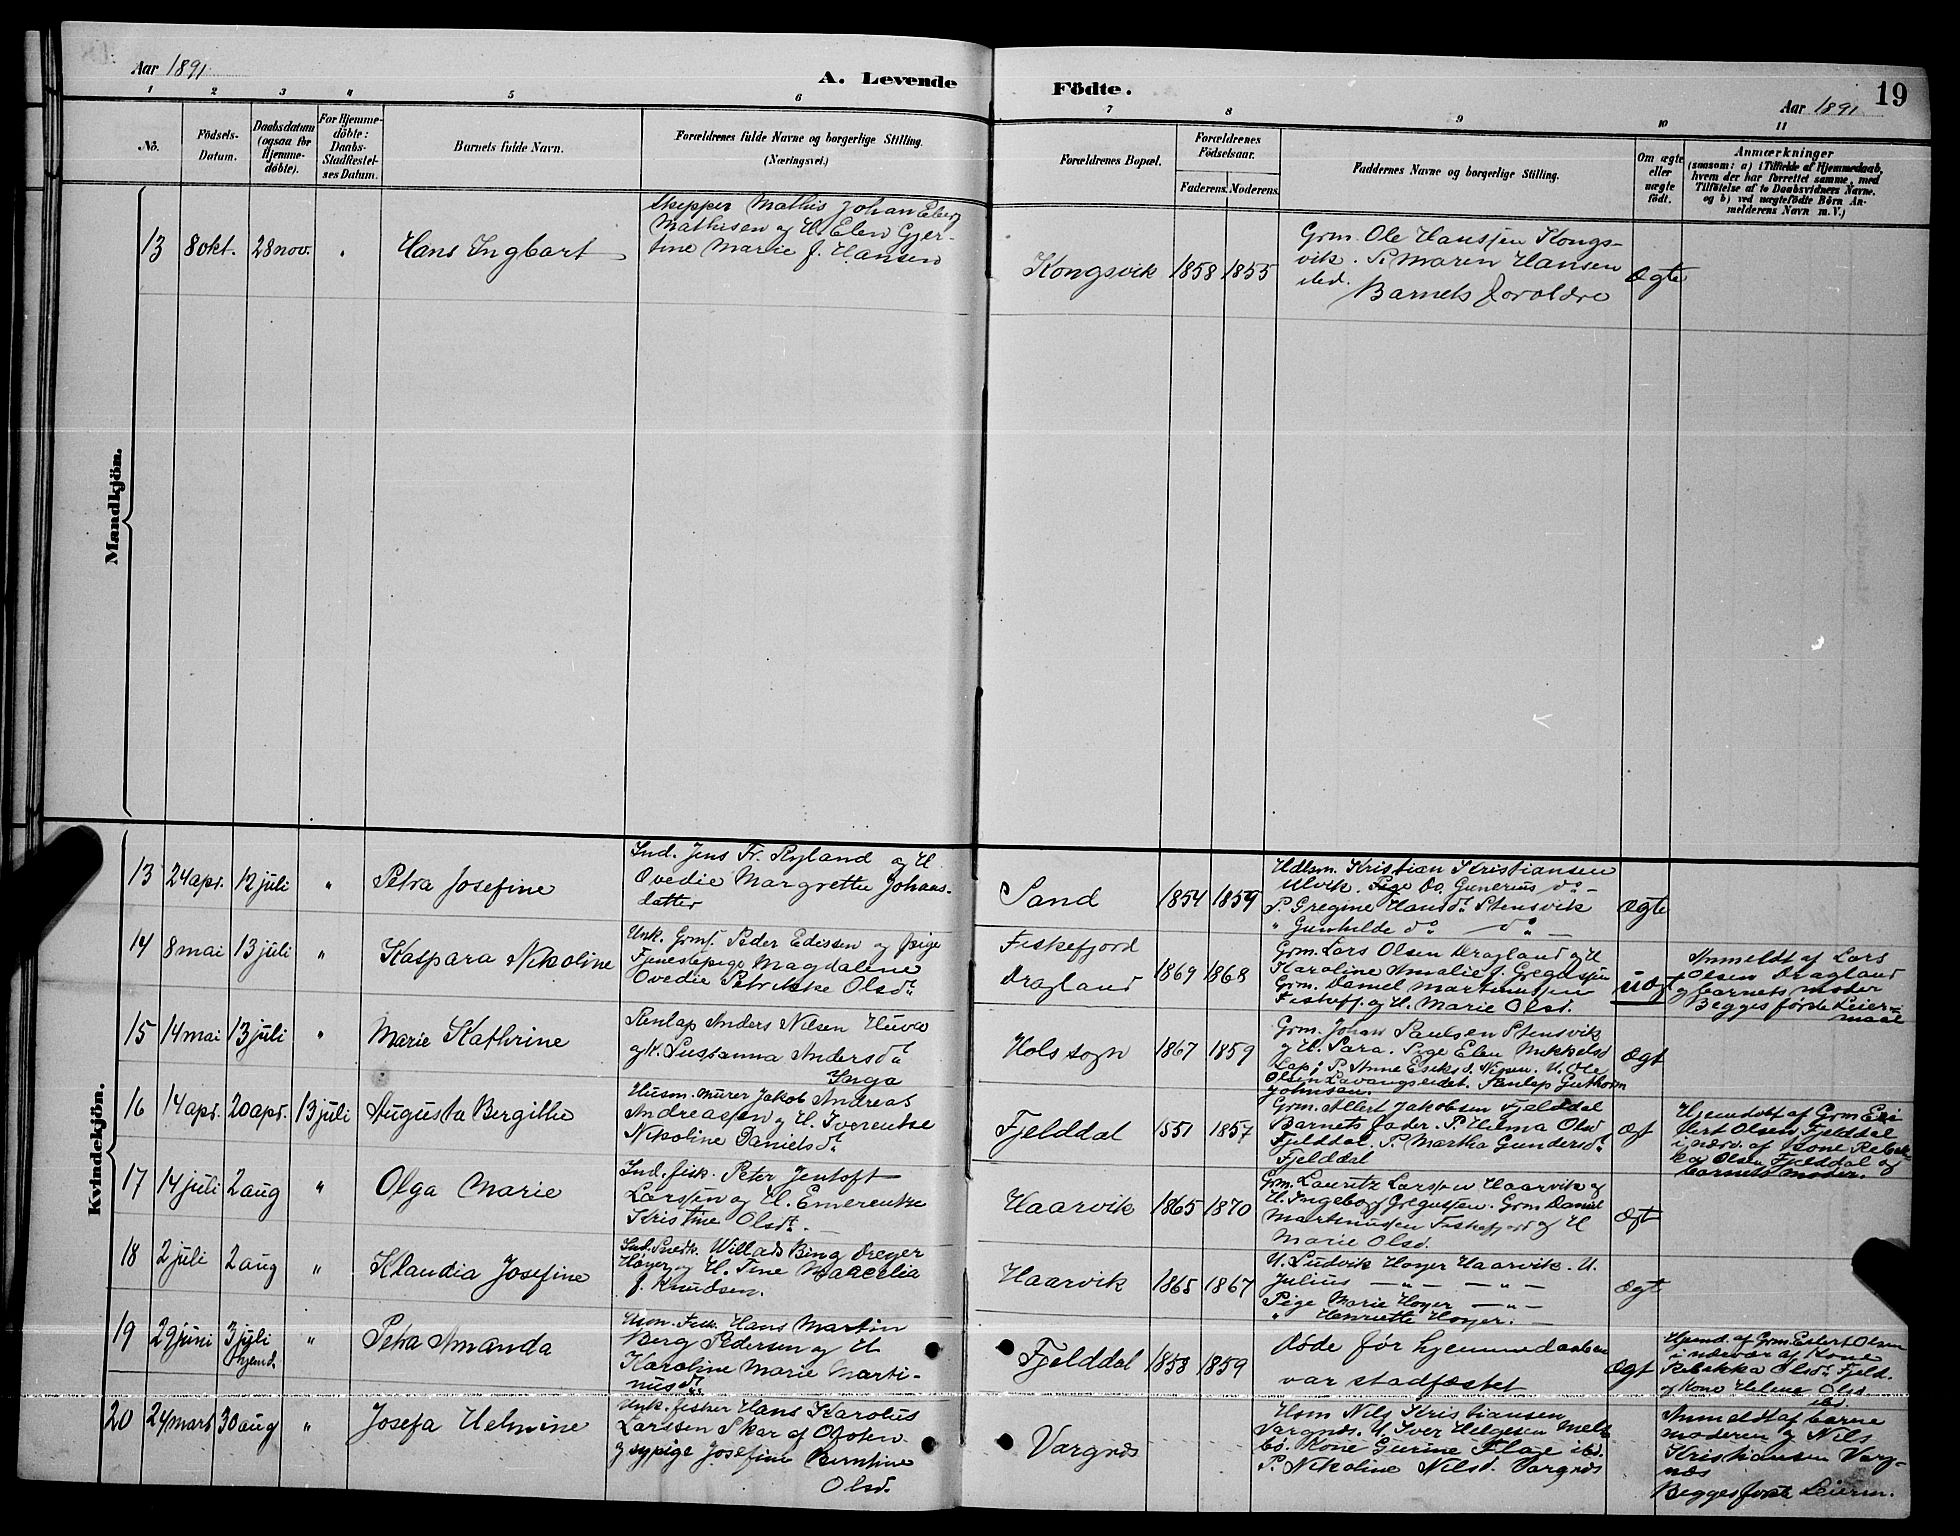 Aar 1891
A. Levende Födte.
Aar 1891
19
1 2 3 4 5 6 7 8 9 10 11
No.
Födsels-Datum.
Daabsdatum (ogsaa for Hjemme-döbte).
For Hjemme-döbte: Daabs-Stadfæstel-ses Datum.
Barnets fulde Navn.
Forældrenes fulde Navne og borgerlige Stilling. (Næringsvei.)
Forældrenes Bopæl.
Forældrenes Födselsaar.
Faderens. Moderens.
Faddernes Navne og borgerlige Stilling.
Om ægte eller uægte födt.
Anmærkninger
(saasom: a) i Tilfælde af Hjemmedaab,
hvem der har forrettet samme, med
Tilföielse af to Daabsvidners Navne,
og b) ved uægtefödte Börn An-
melderens Navn m. V.)
Mandkjön.
13 8 okt. 28 nov. " Hans Ingbart
Skipper Mathis Johan Eberg
Mathisen og H. Elen Gjer-
tine Marie f. Hansen
Kongsvik 1858 1855
Grm. Ole Hanssen Kongs-
vik. P. Maren Hansen
ibed.
Barnets foroldre
Ægte
Kvindekjön.
13 24 apr. 12 juli " Petra Josefine
Ind. Jens Fr. Ryland og H
Ovedie Margrethe Johans-
datter
Sand 1854 1859
Udlsm. Kristian Kristiansen
Ulvik. Pige Do. Gunerius do
P. Gregine Hansd. Stensvik
" Gunhilde do do
Ægte
14 8 mai 13 juli " Kaspara Nikoline
Unk. Grmf. Peder Edissen og pige
Tjenestepige Magdalene
Ovedie Petrikke Olsdt.
Fiskefjord
Dragland
1869 1868
Grm. Lars Olsen Dragland og H
Karoline Amalie f. Gregussen
Grm. Daniel Martinussen
Fiskefj. og H. Marie Olsd.
uægt
Anmeldt af Lars
Olsen Dragland
og barnets moder
Begges første Leier-
maal
15 14 mai 13 juli " Marie Kathrine
Renlap Anders Nilsen Huva
og K. Sussanna Andersdt.
Inga
Hols sogn 1867 1859
Grm. Johan Paulsen Stensvik
og H. Sara. Pige Elen Mikkelsd
Lap; P. Anne Eriksd. U. Ole
Olsen Lavangseidet. Renlap Guthorm
Johnsen.
Ægt
16 14 apr. 20 apr. 13 juli Augusta Bergithe
Husm. murer Jakob Andreas
Andreassen og H. Iverentse
Nikoline Danielsdt.
Fjelddal 1851 1857
Grm. Albert Jakobsen Fjelddal
Barnets fader. P. Helma Olsd
Fjelddal. P. Martha Gundersdt.
Fjelddal
Ægt
Hjemdøbt af Grm Esi
bert Olsen Fjelddal
i nærv. af kone Rebek-
ka Olsen Fjelddal og
barnets moder.
17 14 juli 2 aug " Olga Marie
Ind. fisk. Peter Jentoft
Larssen og H. Emerentse
Kristine Olsdt.
Haarvik 1865 1870
Grm. Lauritz Larssen Haarvik og
H. Ingeborg Gregussen. Grm Daniel
Martinussen Fiskefjord og H
Marie Olsd.
Ægt
18 2 juli 2 aug " Klaudia Josefine
Ind. Snedk. Willads Bing Dreyer
Høyer og H. Tine Marcelia
f. Knudsen.
Haarvik 1865 1867
U. Ludvik Hoyer Haarvik. U.
Julius — " — — " —
Pige Marie Hoyer — " —
" Henriette Hoyer. —
Ægt
19 29 juni 3 juli hjemd. " Petra Amanda
Hsm. Fisk. Hans Martin
Berg Pedersen og H
Karoline Marie Marti-
nusdt.
Fjelddal 1858 1859
døde før hjemmedaaben
var stadfæstet
Ægt
Hjemd. af Grm. Esbert Olsen
i nærvær af kone
Rebekka Olsdt. Fjeld.
og kone Helene Olsd
ibd.
20 24 mart 30 aug " Josefa Helmine
Unk. fisker Hans Karolus
Larssen Skar af Ofoten
og sypige Josefine Berntine
Olsd.
Vargnæs
Hsm Nils Kristiansen
Vargnæs. U. Iver Helgesen Mels
bø. Kone Gurine Flage ibd.
P. Nikoline Nilsd. Vargnæs
Anmeldt af barne
moderen og Nils
Kristiansen Varg-
næs
Begges første Leierm.